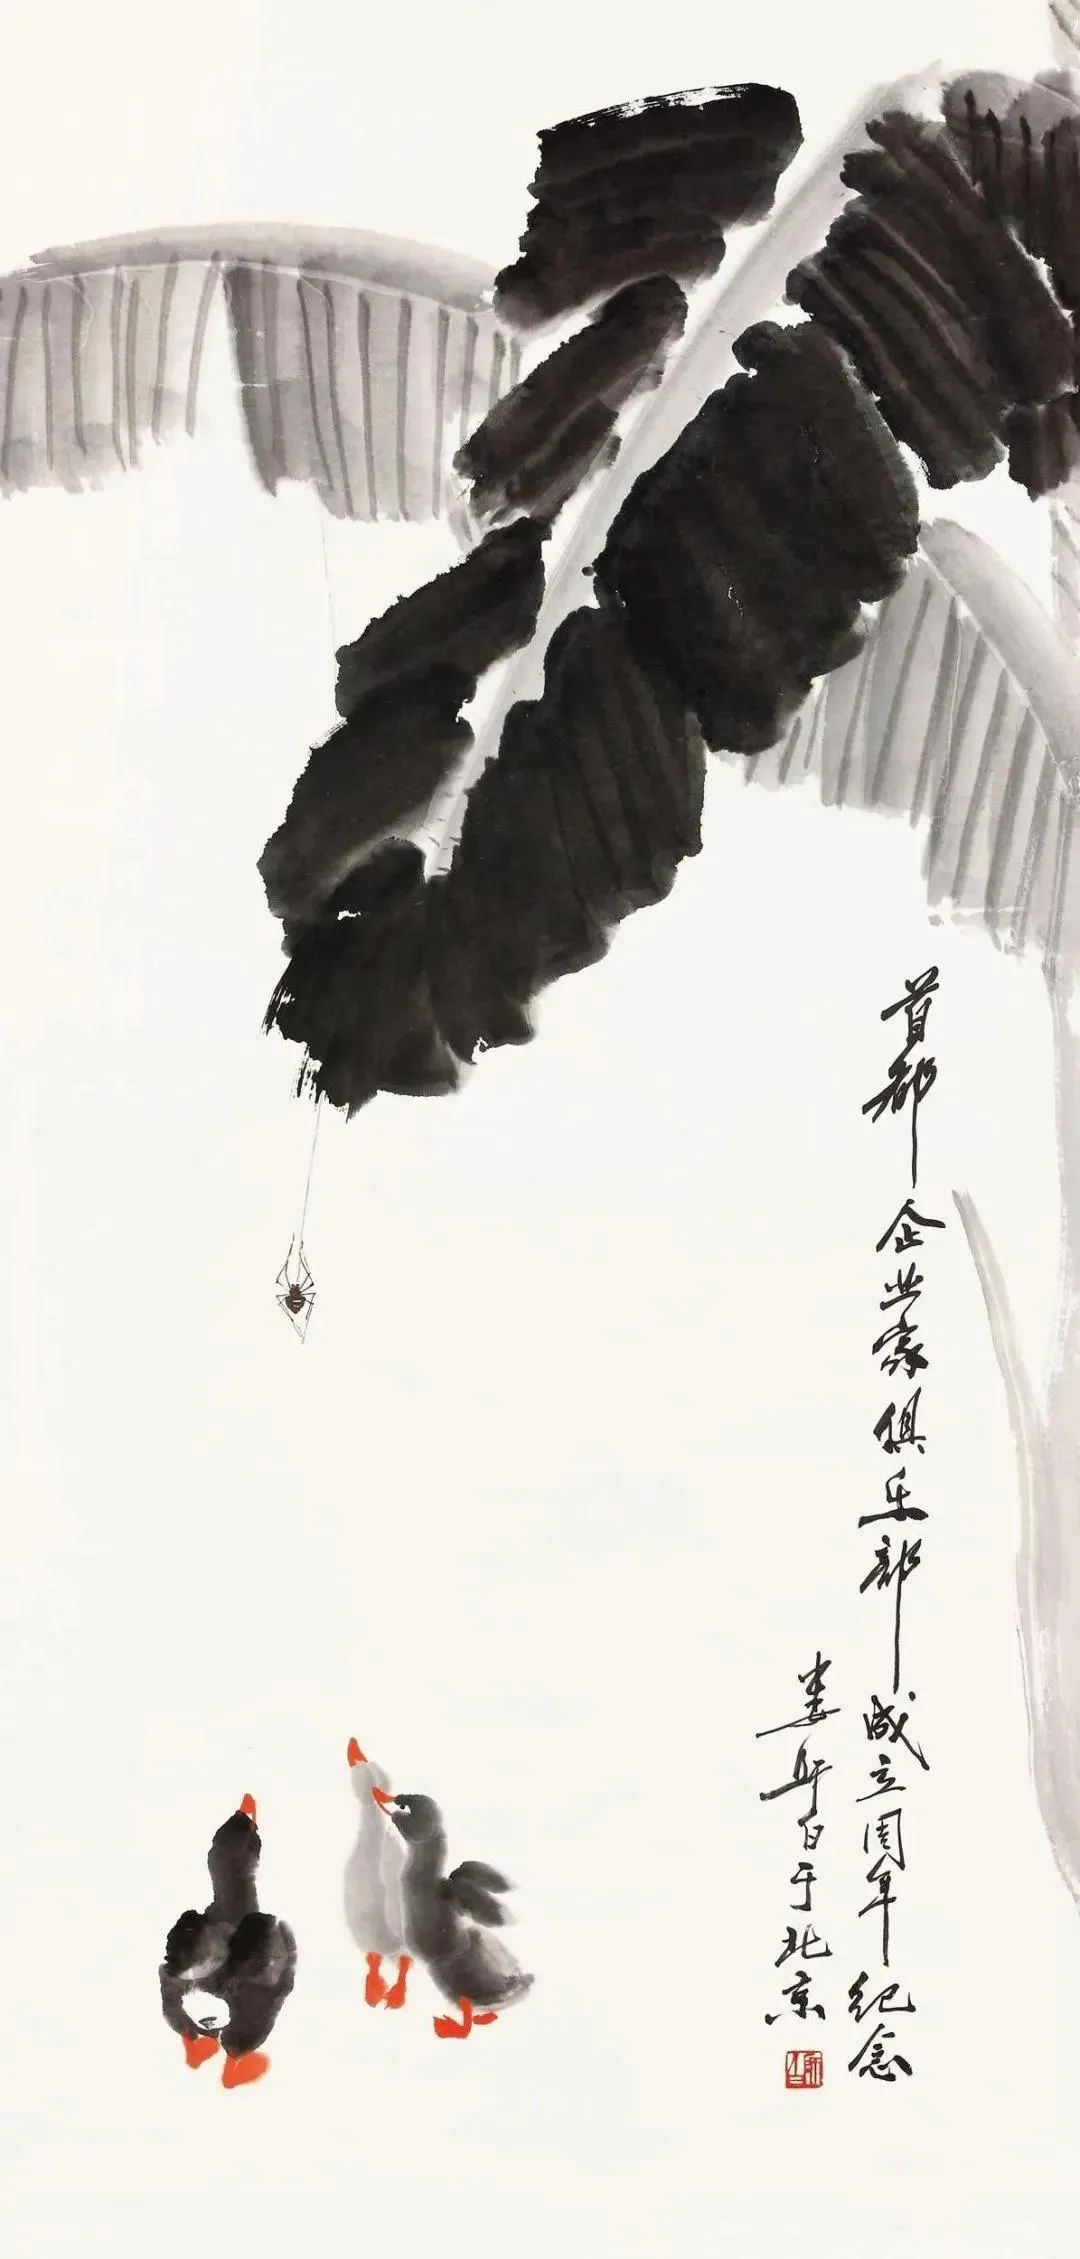 首都企业家俱乐部成立周年纪念
娄师白于北京